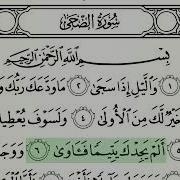 سُورَةُ الضُّحَىٰ
بِسْمِ اللَّهِ الرَّحْمَٰنِ الرَّحِيمِ
١ وَالَّيْلِ إِذَا سَجَىٰ ٢ مَا وَدَّعَكَ رَبُّكَ
خَيْرٌ لَّكَ مِنَ الْأُولَىٰ ٤ وَلَسَوْفَ يُعْطِي
أَلَمْ يَجِدْكَ يَتِيمًا فَـَٔاوَىٰ ٦ وَوَجَ